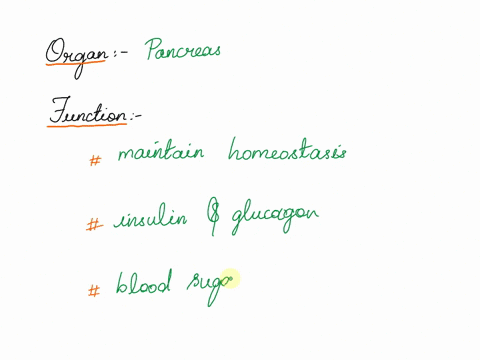 Organ :- Pancreas
Function :-
# maintain homeostasis
# insulin & glucagon
# blood suga